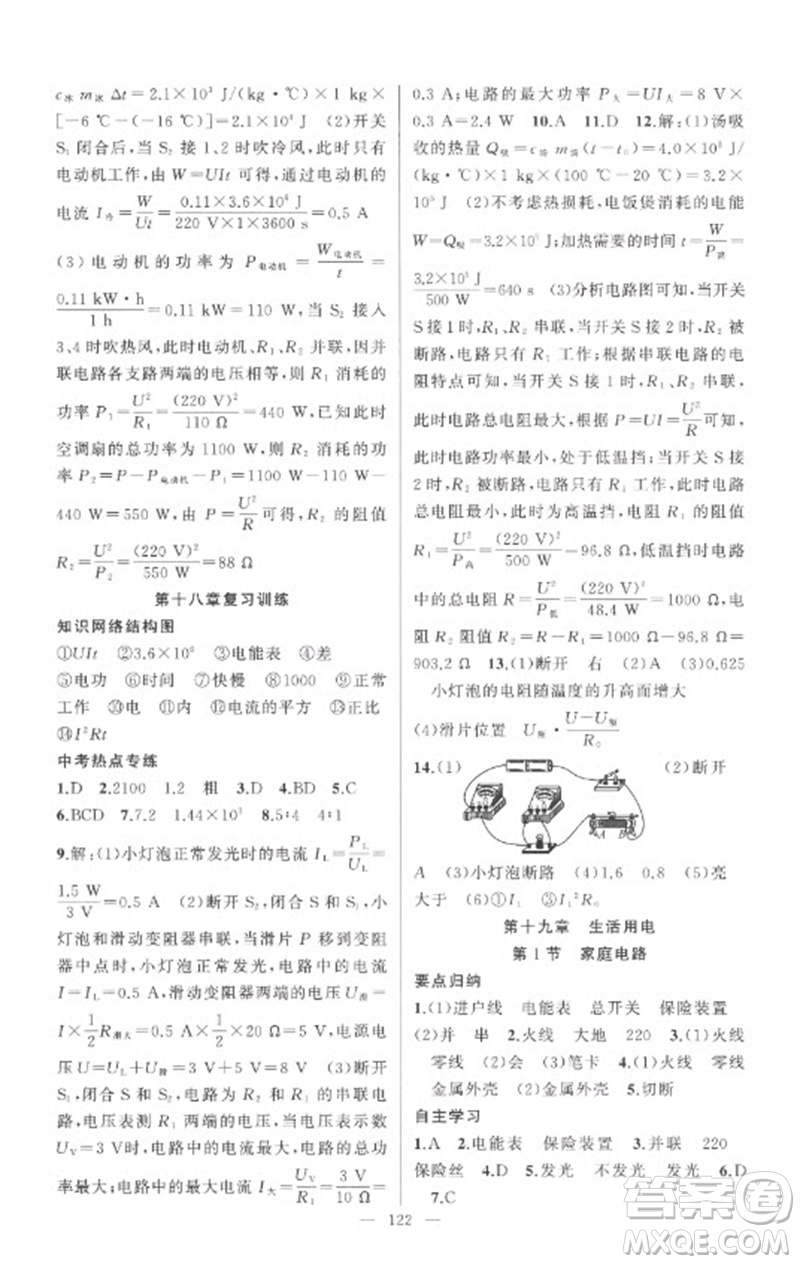 c冰 m冰 Δt=2.1×10³ J/(kg·℃)×1 kg×
[-6 ℃-(-16 ℃)]=2.1×10⁴ J　(2)开关
S₁闭合后,当 S₂ 接 1、2 时吹冷风,此时只有
电动机工作,由 W=UIt 可得,通过电动机的
电流 I冷=W/Ut=0.11×3.6×10⁶ J/220 V×1×3600 s=0.5 A
(3)电动机的功率为 P电动机=W电动机/t=
0.11 kW·h/1 h=0.11 kW=110 W,当 S₂ 接入
3、4 时吹热风,此时电动机、R₁、R₂ 并联,因并
联电路各支路两端的电压相等,R₁ 消耗的
功率 P₁=U²/R₁=(220 V)²/110 Ω=440 W,已知此时
空调扇的总功率为 1100 W,则 R₂ 消耗的功
率 P₂=P-P电动机-P₁=1100 W-110 W-
440 W=550 W,由 P=U²/R可得,R₂ 的阻值
R₂=U²/P₂=(220 V)²/550 W=88 Ω
第十八章复习训练
知识网络结构图
①UIt　②3.6×10⁶　③电能表　④差
⑤电功　⑥时间　⑦快慢　⑧1000　⑨正常
工作　⑩电　⑪内　⑫电流的平方　⑬正比
⑭I²Rt
中考热点专练
1.D　2.2100　1.2　相　3.D　4.BD　5.C
6.BCD　7.7.2　1.44×10³　8.5∶4　4∶1
9.解:(1)小灯泡正常发光时的电流 I_L=P_L/U_L=
1.5 W/3 V=0.5 A　(2)断开 S₂,闭合 S 和 S₁,小
灯泡和滑动变阻器串联,当滑片 P 移到变阻
器中点时,小灯泡正常发光,电路中的电流
I=I_L=0.5 A,滑动变阻器两端的电压 U滑=
I×1/2R滑大=0.5 A×1/2×20 Ω=5 V,电源电
压 U=U_L+U滑=3 V+5 V=8 V　(3)断开
S₁,闭合 S 和 S₂ 时,电路为 R₁ 和 R₂ 的串联电
路,电压表测 R₁ 两端的电压,当电压表示数
U_V=3 V时,电路中的电流最大,电路的总功
率最大;电路中的最大电流 I大=U_V/R₁=3 V/10 Ω=
0.3 A;电路的最大功率 P大=UI大=8 V×
0.3 A=2.4 W　10.A　11.D　12.解:(1)汤吸
收的热量 Q吸=c汤 m汤(t-t₀)=4.0×10³ J/
(kg·℃)×1 kg×(100 ℃-20 ℃)=3.2×
10⁵ J　(2)不考虑热损耗,电饭煲消耗的电能
W=Q吸=3.2×10⁵ J;加热需要的时间 t=W/P高=
3.2×10⁵ J/500 W=640 s　(3)分析电路图可知,当开关
S 接 1 时,R₁、R₂ 串联,当开关 S 接 2 时,R₂ 被
断路,此时电路只有 R₁ 工作;根据串联电路的电
阻特点可知,当开关 S 接 1 时,R₁、R₂ 串联,
此时电路总电阻最大,根据 P=UI=U²/R可知,
此时电路功率最小,处于低温挡;当开关 S 接
2 时,R₂ 被断路,只有 R₁ 工作,此时电路
总电阻最小,处于高温挡,可知,电阻 R₁ 的阻值
R₁=U²/P高=(220 V)²/500 W=96.8 Ω,低温挡时电路
中的总电阻 R=U²/P低=(220 V)²/48.4 W=1000 Ω,电
阻 R₂ 阻值 R₂=R-R₁=1000 Ω-96.8 Ω=
903.2 Ω　13.(1)断开　右　(2)A　(3)0.625
小灯泡的电阻随温度的升高而增大
(4)滑片位置　U额·U-U额/R₀
14.(1)　(2)断开
A　(3)小灯泡断路　(4)1.6　0.8　(5)亮
大于　(6)①I₁　②I₁²R₀
第十九章　生活用电
第 1 节　家庭电路
要点归纳
1.(1)进户线　电能表　总开关　保险装置
(2)并　串　2.火线　大地　220　3.(1)火线
零线　(2)会　(3)笔卡　4.(1)火线　零线
金属外壳　(2)金属外壳　5.切断
自主学习
1.A　2.电能表　保险装置　3.并联　220
保险丝　4.D　5.发光　不发光　发光　6.D
7.C
— 122 —
答案卷